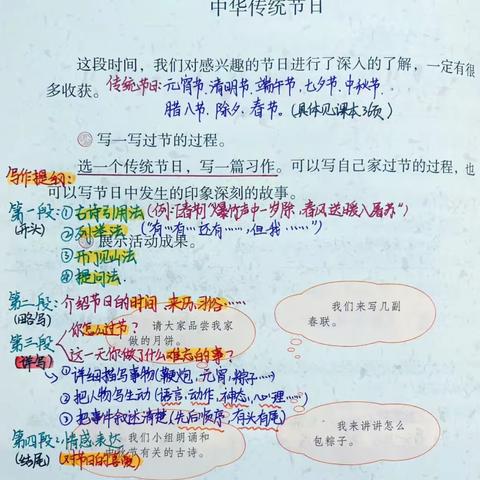 中华传统节日
这段时间，我们对感兴趣的节日进行了深入的了解，一定有很
多收获。传统节日：元宵节、清明节、端午节、七夕节、中秋节、
腊八节、除夕、春节。（具体见课本36页）
写一写过节的过程。
写作提纲：选一个传统节日，写一篇习作。可以写自己家过节的过程，也
可以写节日中发生的印象深刻的故事。
第一段：①古诗引用法（例：《春节》"爆竹声中一岁除，春风送暖入屠苏"）
（开头）②列举法（"有…有…还有……，但我……"）
展示活动成果。
③开门见山法
④提问法
第二段：介绍节日的时间、来历、习俗……
（略写）
我们来写几副
春联。
第三段 你怎么过节？
请大家品尝我家
做的月饼。
（详写）这一天你做了什么难忘的事？
①详细描写事物（鞭炮、元宵、粽子…）
②把人物写生动（语言、动作、神态、心理…）
③把事件叙述清楚（先后顺序，有头有尾）
我来讲讲怎么
包粽子。
第四段：情感表达
（结尾）（对节日的喜爱）
我们小组朗诵和
中秋节有关的古诗。